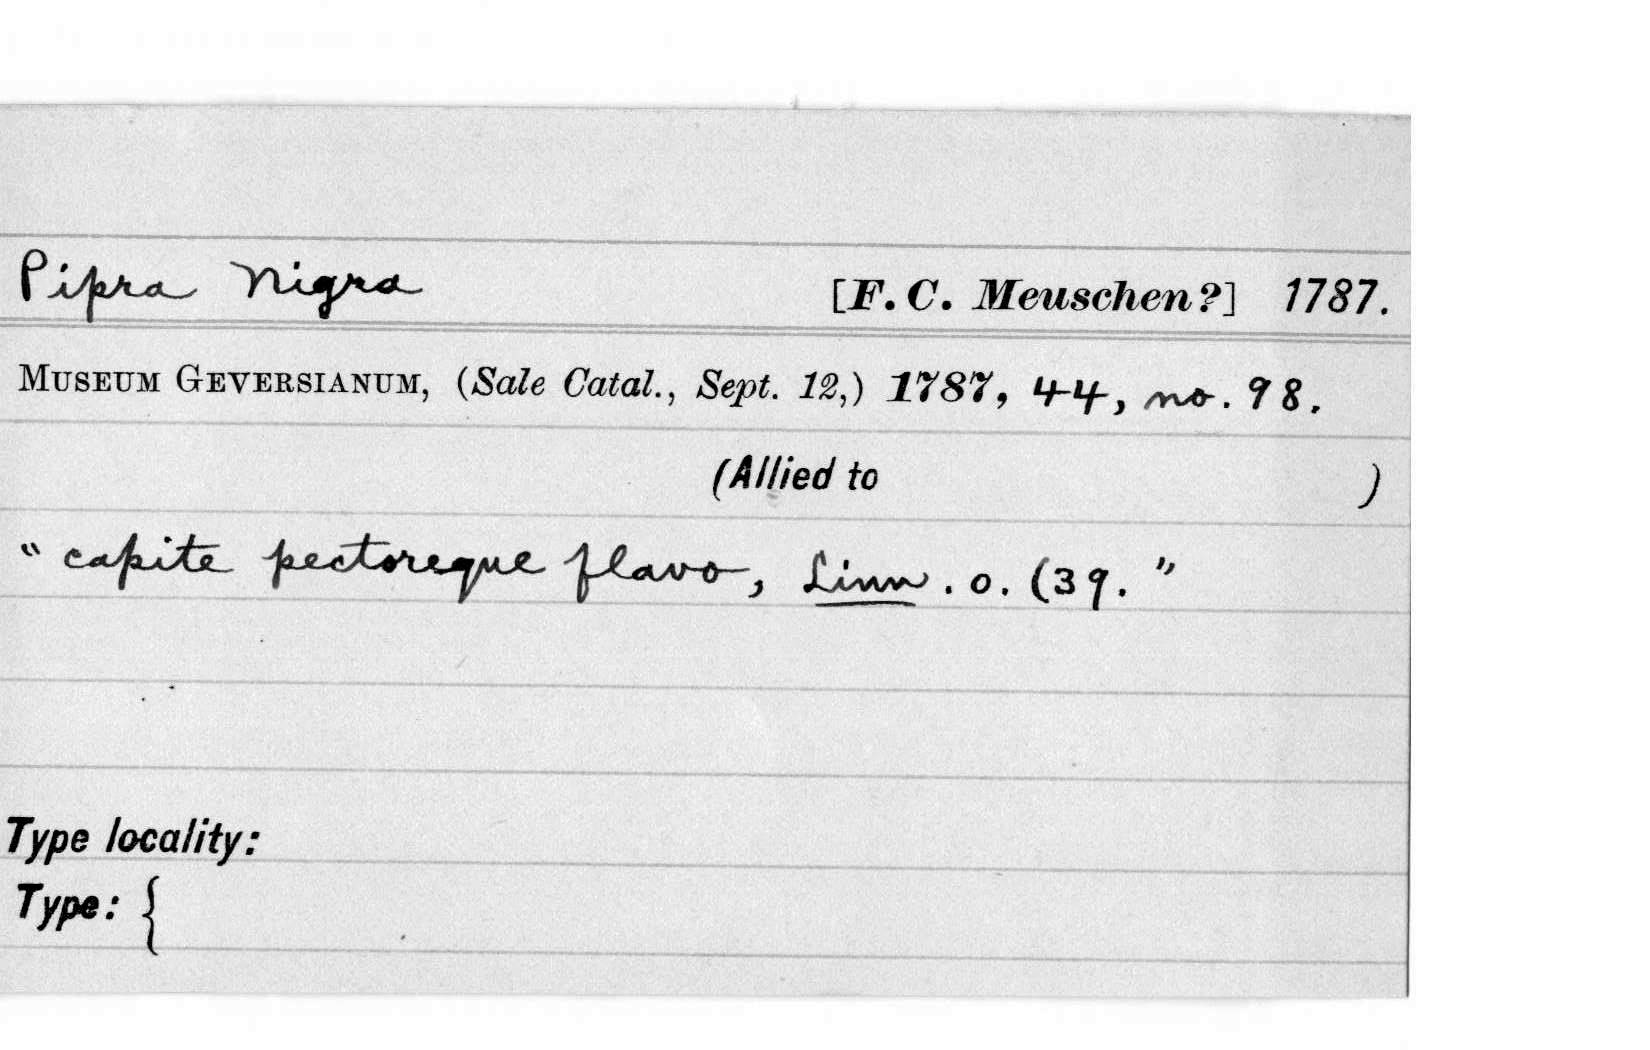 Pipra nigra [F. C. Meuschen?] 1787.
MUSEUM GEVERSIANUM, (Sale Catal., Sept. 12,) 1787, 44, no. 98.
(Allied to )
"capite pectoreque flavo, Linn. o. (39."
Type locality:
Type: {